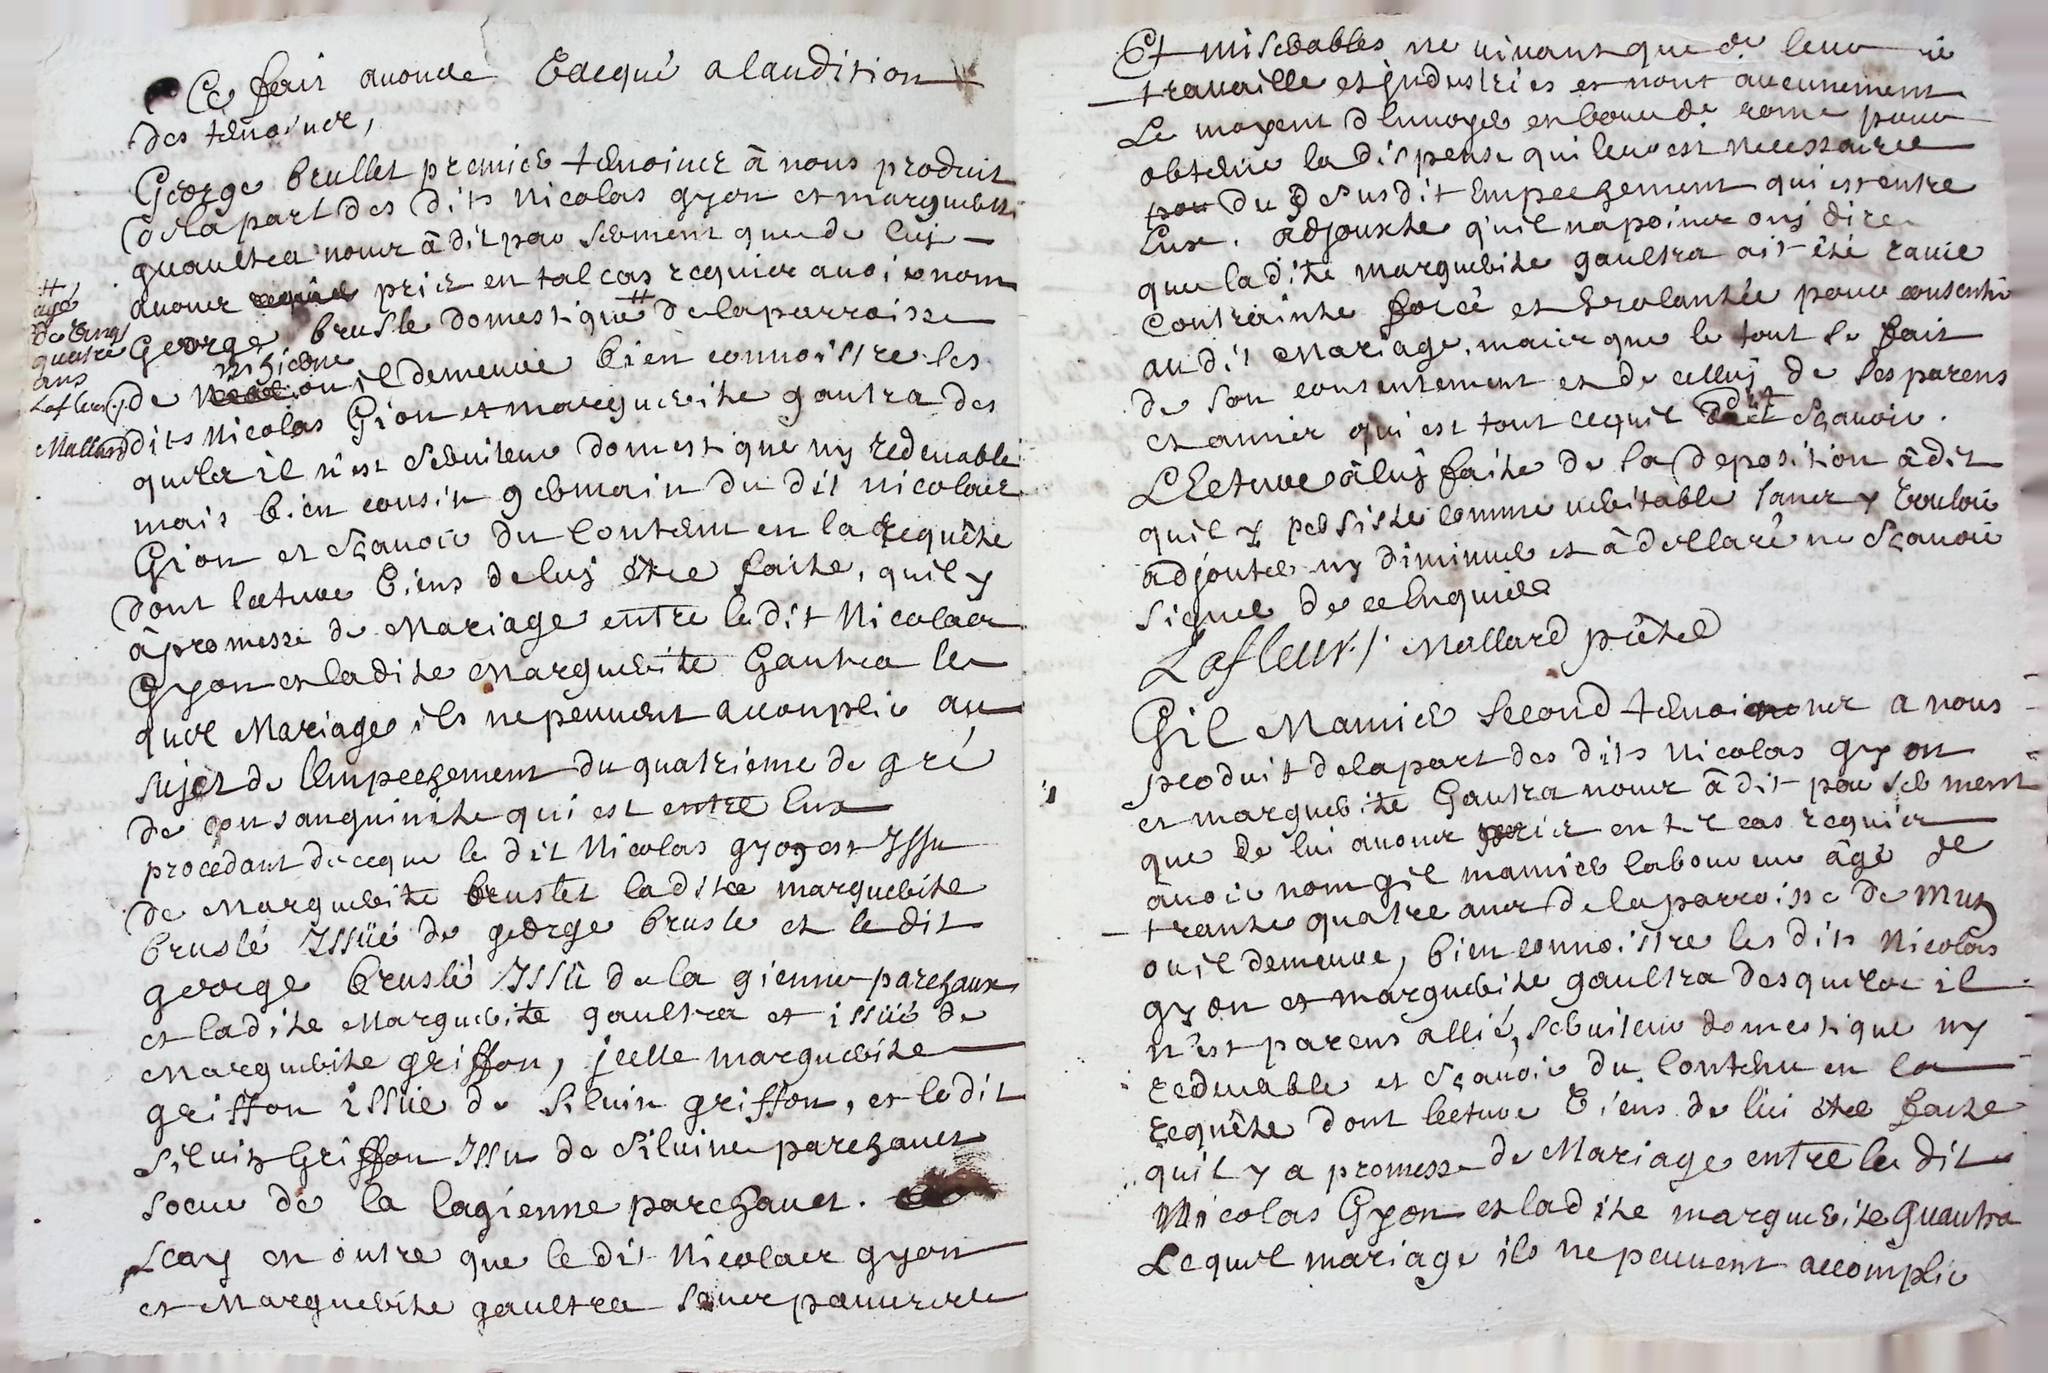 Ce fait avons Vacqué a laudition
des temoins,
George brullet premier temoins à nous produit
de la part des dits Nicolas gyon et marguerite
guaultra nous à dit par serment que de luy
avons pris en tal cas requier avoir nom
George brusle domestique # de la parroisse
de où il demeure bien connoistre les
dits Nicolas Gion et marguerite gautra des
quels il n'est serviteur domestique ny redevable
mais bien cousin germain du dit nicolas
Gion et sçavoir du contenu en la requête
dont lecture Viens de luy être faite, quil y
à promesse de Mariage entre le dit Nicolas
Gyon et la dite Marguerite Gautra le
quel Mariage ils ne peuvent accomplir au
sujet de l'empeschement du quatrieme de gré
de consanguinite qui est entre Eux
procedant de ceque le dit Nicolas gyon est Issu
de Marguerite bruslet la dite marguerite
bruslé Issüe de george brusle et le dit
george bruslé Issû de la gienne parchaux
et la dite Marguerite gaultra et issüe de
Marguerite griffon, jcelle marguerite
griffon issüe de silvin griffon, et le dit
silvin Griffon Issu de silvine parchaux
soeur de la lagienne parchaux.
Scay en outre que le dit Nicolas gyon
et Marguerite gaultra sont pauvres
#
agé
de
quatre
ans
Lafleur
Mallard
Et miserables ne vivant que de leur
travaille et jndustries et nont aucunement
Le moyent d'envoyer en cour de rome pour
obtenir la dispense qui leur est necessaire
du susdit Empeschement qui est entre
Eux. adjouxte qu'il na point ouj dire
que la dite marguerite gaultra ait été ravie
Contrainte forcé et violantée pour consentir
au dit Mariage, mais que le tout se fait
de son consentement et de celluy de ses parens
et amis qui est tout cequil dit sçavoir.
LEcture à luy faite de sa deposition à dit
quil y persiste comme veritable sans y Vouloir
adjouter ny diminuer et à dellaré ne sçavoir
signer de ce Enquis
Lafleur / Mallard pûtre
Gil Mamier second temoins a nous
produit de la part des dits Nicolas gyon
et marguerite Gautra nous à dit par serment
que de lui avons pris en tel cas requier
avoir nom gil mamier laboureur âgé de
trante quatre ans de la parroisse de Mus
ou il demeure, bien connoistre les dits Nicolas
gyon et marguerite gaultra desquels il
n'est parens allié, serviteur domestique ny
redevable et sçavoir du contenu en la
requête dont lecture Viens de lui être faite
quil y a promesse de Mariage entre le dit
Nicolas Gyon et la dite marguerite Guautra
Lequel mariage ils ne peuvent accomplir